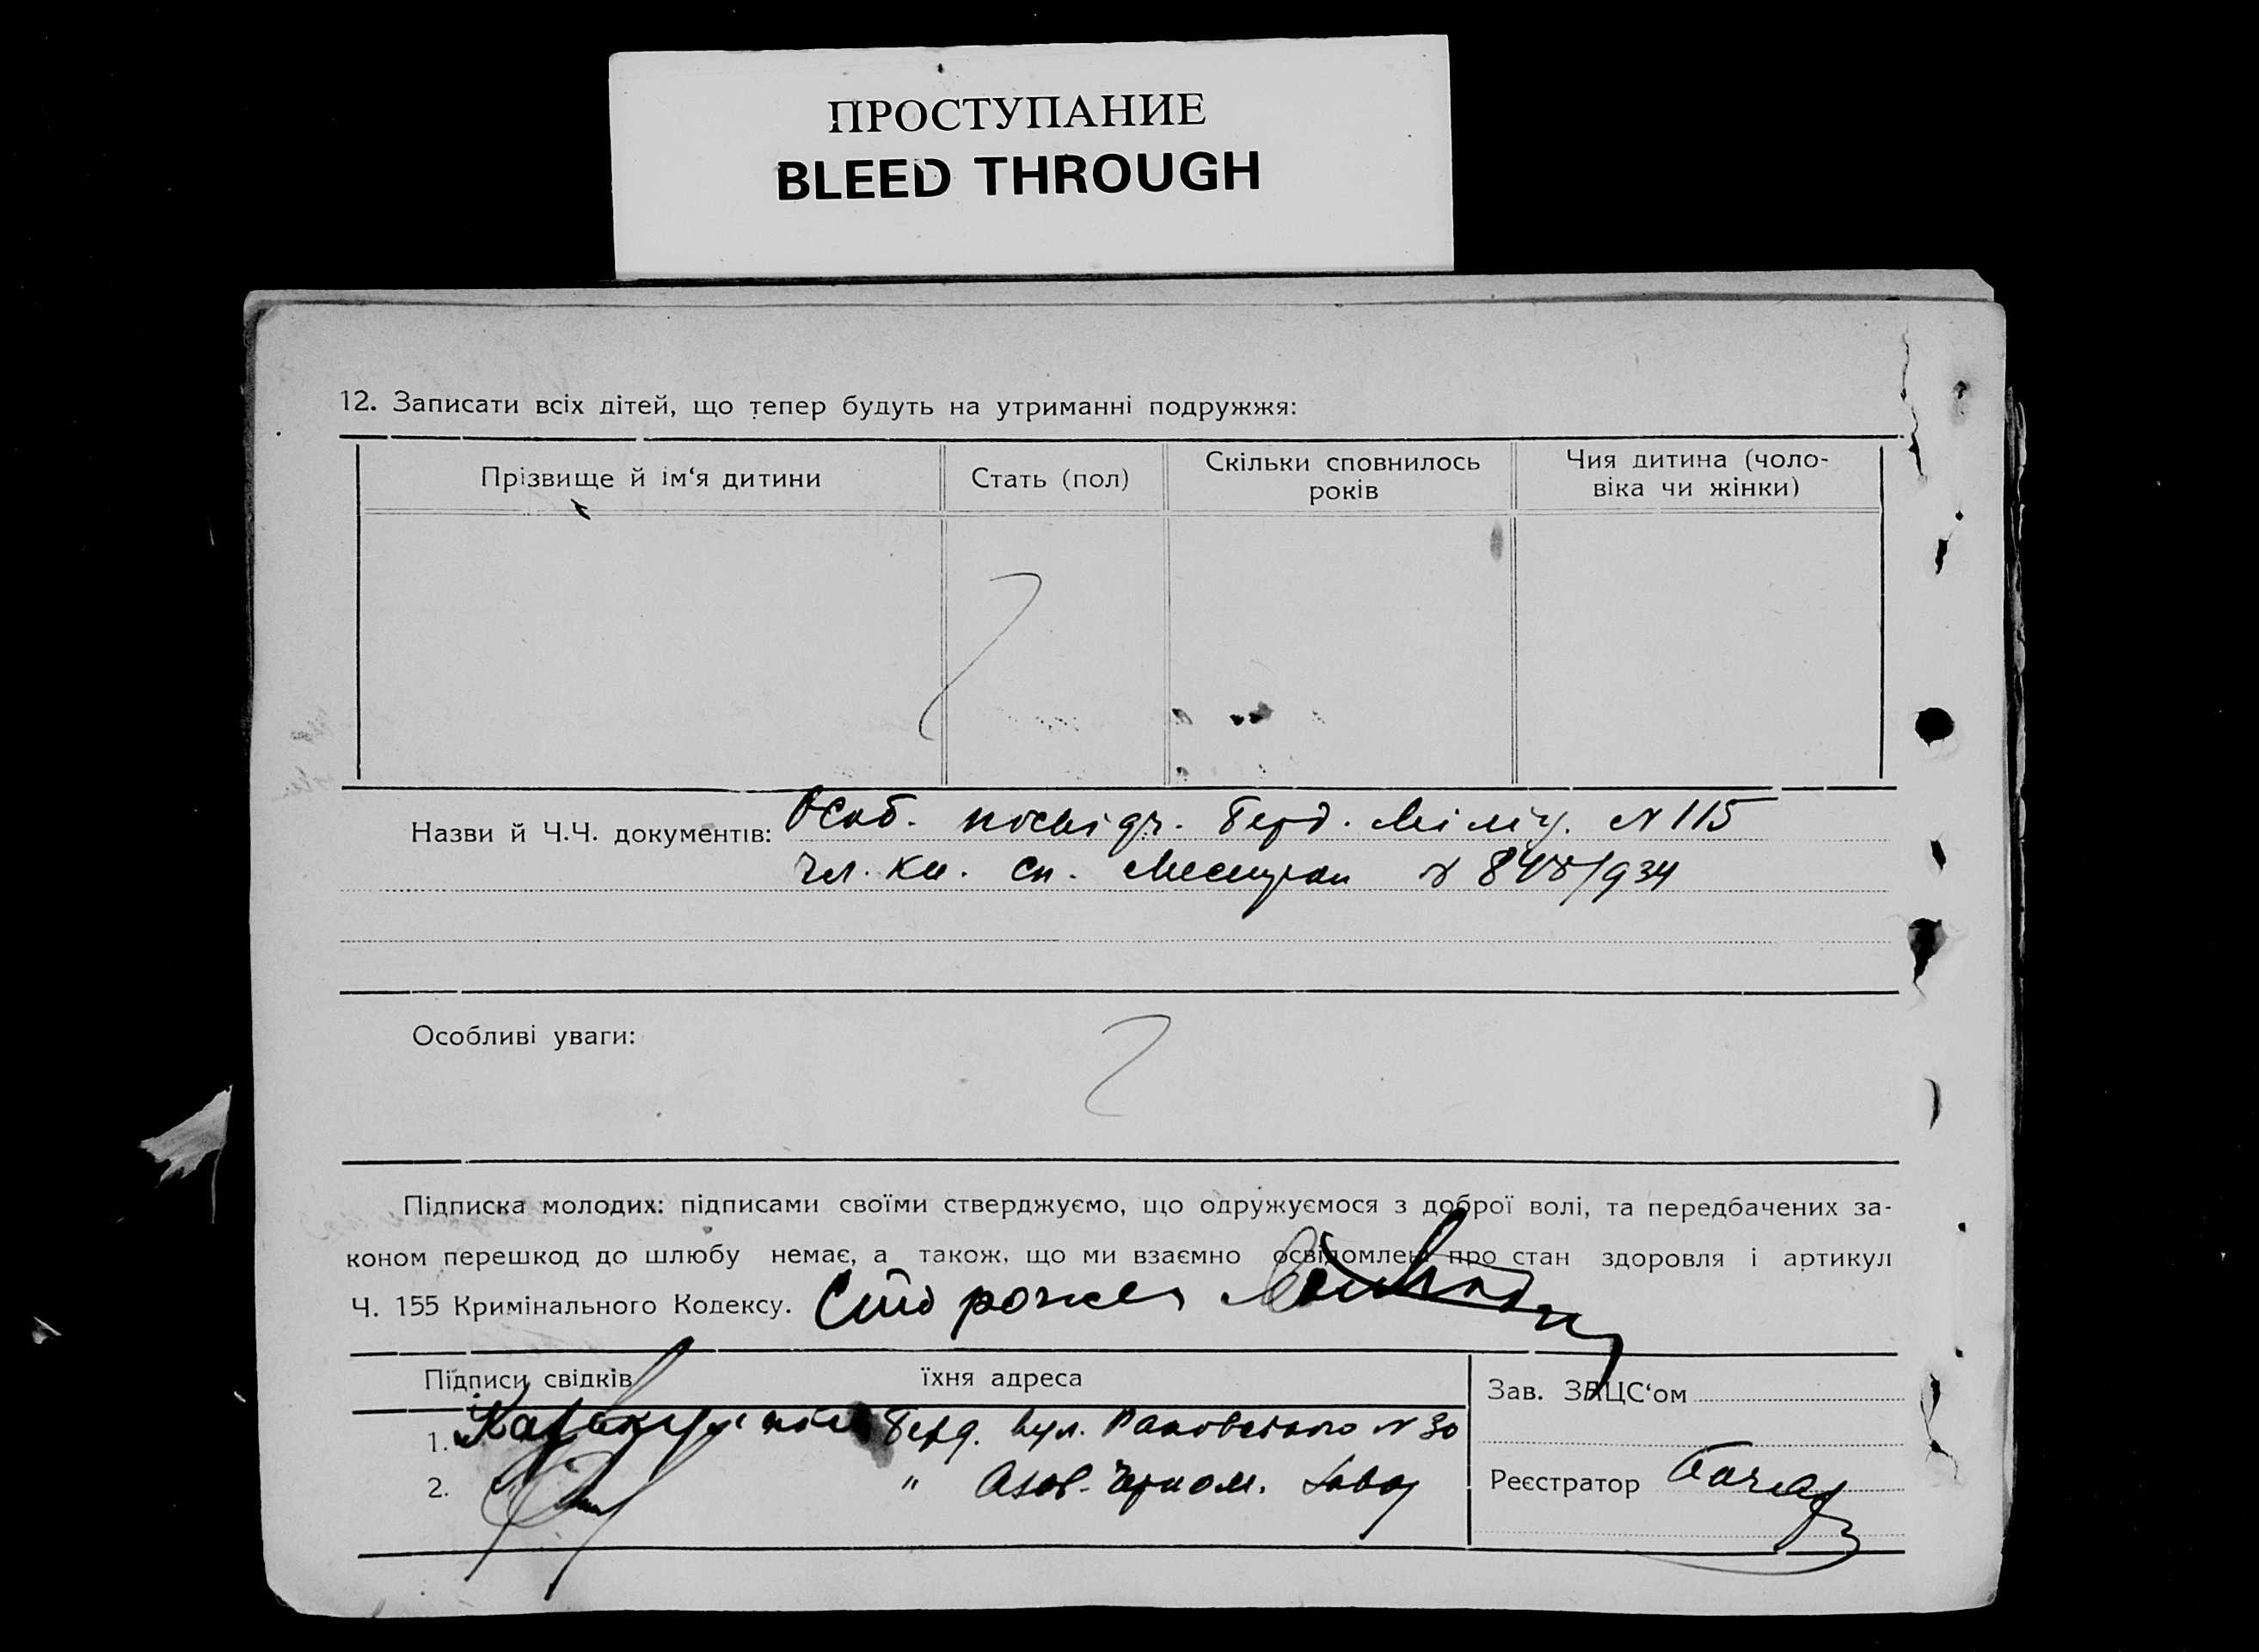 ПРОСТУПАНИЕ
BLEED THROUGH
12. Записати всіх дітей, що тепер будуть на утриманні подружжя:
Прізвище й ім‘я дитини
Стать (пол)
Скільки сповнилось
років
Чия дитина (чоло-
віка чи жінки)
Назви й Ч.Ч. документів: Особ. посвідч. Берд. Міліц. N 115
Чл. кн. сп. N /934
Особливі уваги:
Підписка молодих: підписами своїми стверджуємо, що одружуємося з доброї волі, та передбачених за-
коном перешкод до шлюбу немає, а також, що ми взаємно освідомлені про стан здоровля і артикул
Ч. 155 Кримінального Кодексу.
Підписи свідків
їхня адреса
Зав. ЗАЦС‘ом
1. Берд. вул. Раковського N 30
2. " Азов. Чорном.
Реєстратор